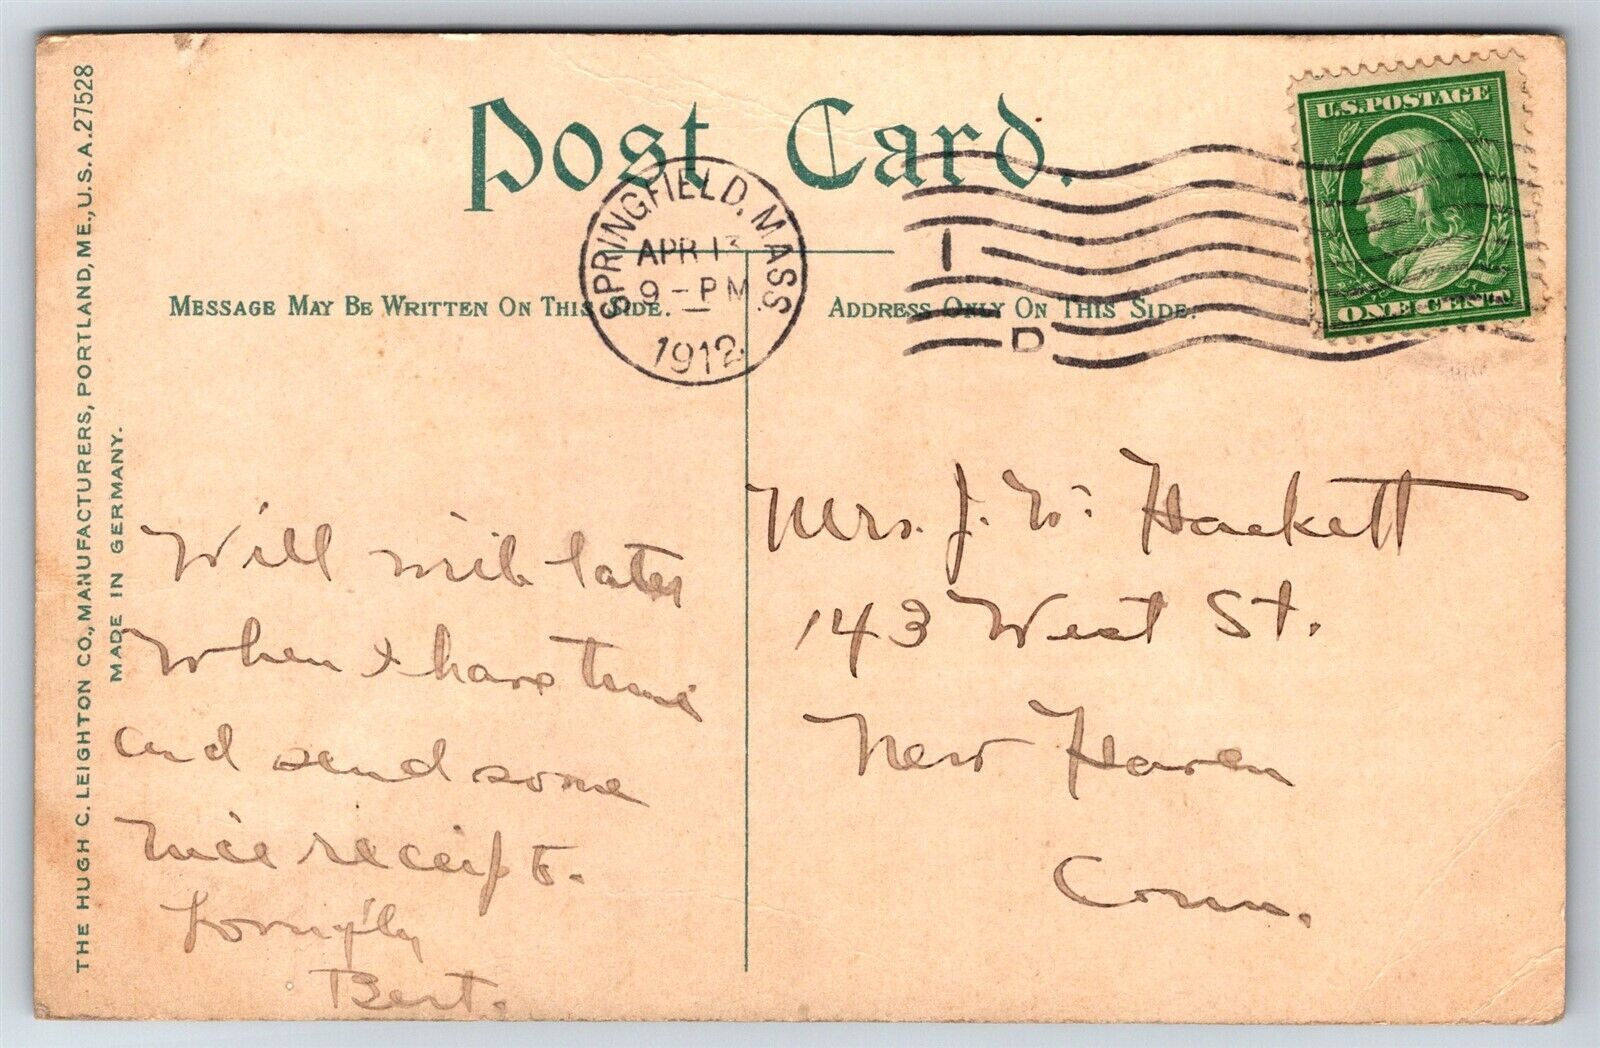 Post Card.
SPRINGFIELD, MASS.
APR 13
9-PM
1912
I
D
U.S.POSTAGE
ONE CENT
MESSAGE MAY BE WRITTEN ON THIS SIDE.
ADDRESS ONLY ON THIS SIDE.
THE HUGH C. LEIGHTON CO., MANUFACTURERS, PORTLAND, ME., U.S.A. 27528
MADE IN GERMANY.
Will write later
When I have time
and send some
nice receipts.
Lovingly
Bert.
Mrs. J. W. Hackett
143 West St.
New Haven
Conn.